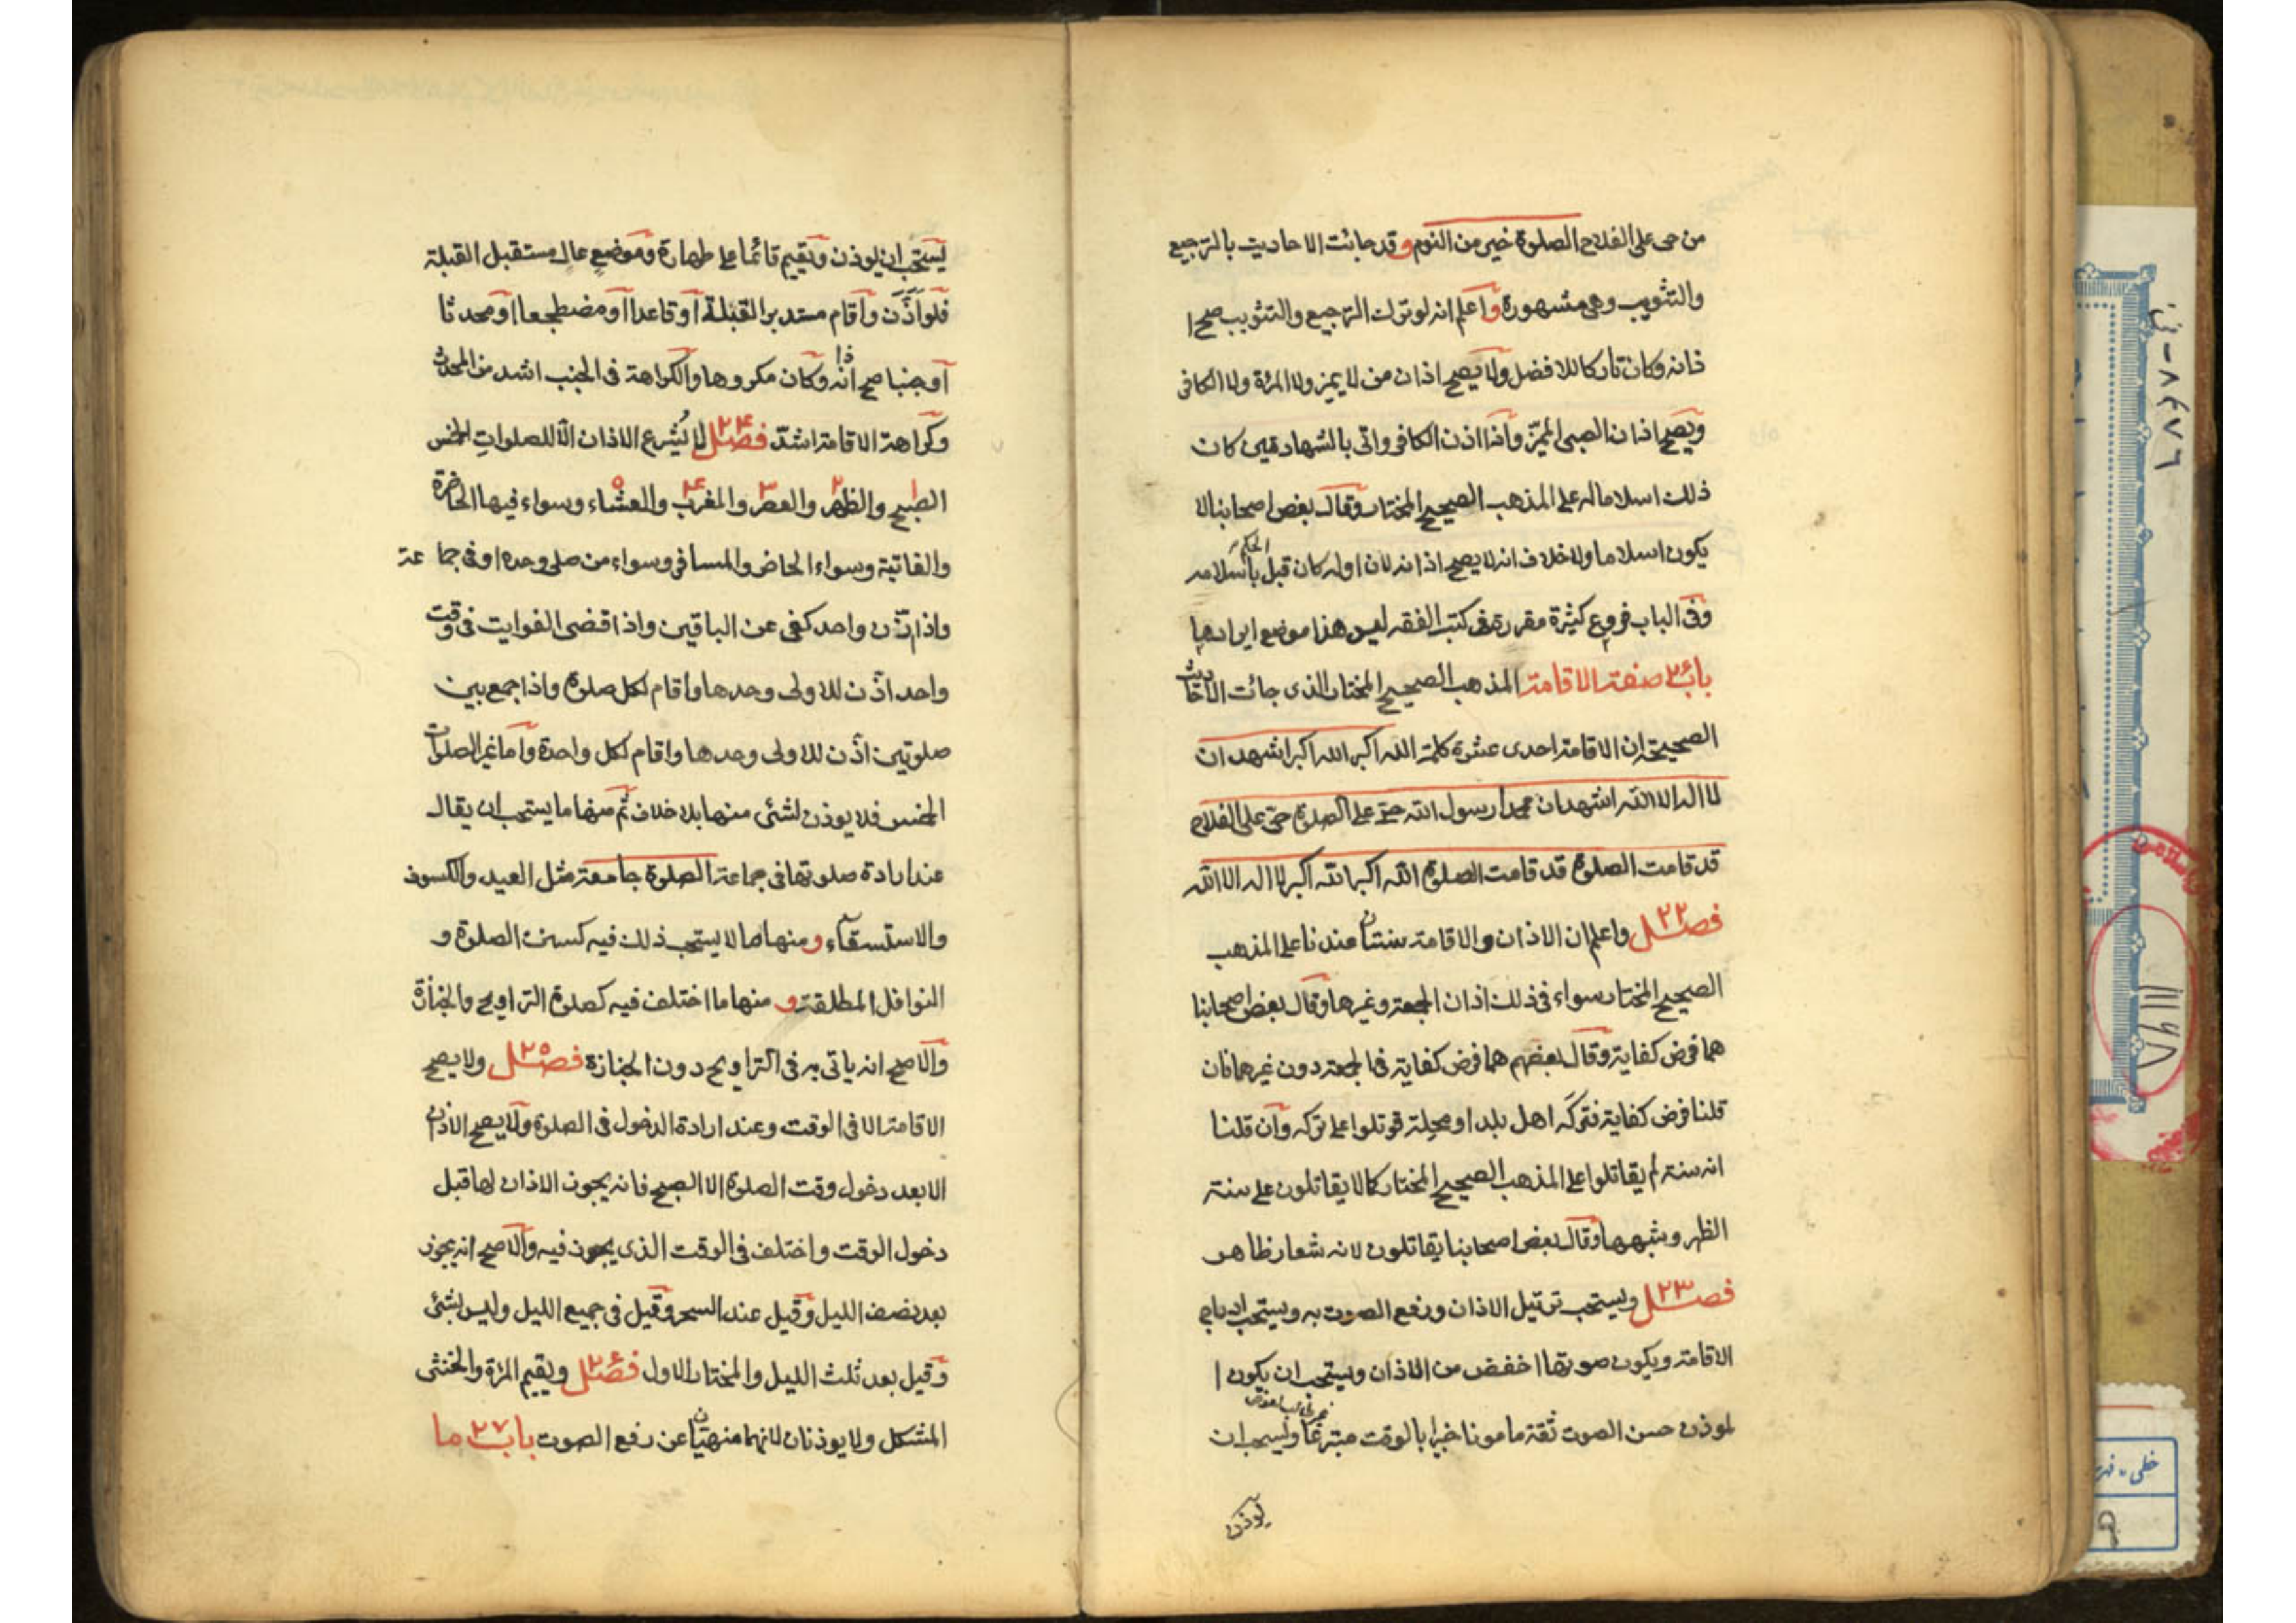 من حى على الفلاح الصلوة خير من النوم وقد جائت الاحاديث بالترجيع
والتثويب وهى مشهورة واعلم انه لو ترك الترجيع والتثويب صح ا
ذانه وكان تاركا للافضل ولا يصح اذان من لا يميز ولا المرئة ولا الكافر
ويصح اذان الصبى المميّز واذا اذن الكافر واتى بالشهادتين كان
ذلك اسلاما له على المذهب الصحيح المختار وقال بعض اصحابنا لا
يكون اسلاما ولا خلاف انه لا يصح اذانه لان اوله كان قبل الحكم باسلامه
وفى الباب فروع كثيرة مقررة فى كتب الفقه ليس هذا موضع ايرادها
باب صفة الاقامة المذهب الصحيح المختار الذى جائت الاحاديث
الصحيحة ان الاقامة احدى عشرة كلمة الله اكبر الله اكبر اشهد ان
لا اله الا الله اشهد ان محمدا رسول الله حىّ على الصلوة حىّ على الفلاح
قد قامت الصلوة قد قامت الصلوة الله اكبر الله اكبر لا اله الا الله
فصل ٢٢ واعلم ان الاذان والاقامة سنتان عندنا على المذهب
الصحيح المختار سواء فى ذلك اذان الجمعة وغيرها وقال بعض اصحابنا
هما فرض كفاية وقال بعضهم هما فرض كفاية فى الجمعة دون غيرها فان
قلنا فرض كفاية فتركه اهل بلد او محلة قوتلوا على تركه وان قلنا
انه سنة لم يقاتلوا على المذهب الصحيح المختار كما لا يقاتلون على سنة
الظهر وشبهها وقال بعض اصحابنا يقاتلون لانه شعار ظاهر
فصل ٢٣ ويستحب ترتيل الاذان ورفع الصوت به ويستحب ادراج
الاقامة ويكون صوتها اخفض من الاذان ويستحب ان يكون ا
لموذن حسن الصوت ثقة مامونا خبيرا بالوقت متبرعا ويستحب ان
يوذن
يستحب ان يوذن ويقيم قائما على طهارة وموضع عال مستقبل القبلة
فلو اَذَّن واقام مستدبر القبلة او قاعدا او مضطجعا او محدثا
او جنبا صح اذانه وكان مكروها والكراهة فى الجنب اشد من المحدث
وكراهة الاقامة اشدّ فصل ٢۴ لا يُشرع الاذان الّا للصلواتِ الخمس
الصبح ١ والظهر ٢ والعصر ٣ والمغرب ۴ والعشاء ٥ وسواء فيها الحاضرة
والفائتة وسواء الحاضر والمسافر وسواء من صلى وحده او فى جماعة
واذا اذّن واحد كفى عن الباقين واذا قضى الفوايت فى وقت
واحد اذّن للاولى وحدها واقام لكل صلوة واذا جمع بين
صلوتين اذّن للاولى وحدها واقام لكل واحدة واما غير الصلوات
الخمس فلا يوذن لشئى منها بلا خلاف ثم منها ما يستحب ان يقال
عند ارادة صلوتها فى جماعة الصلوة جامعة مثل العيد والكسوف
والاستسقاء ومنها ما لا يستحب ذلك فيه كسنن الصلوة و
النوافل المطلقة و منها ما اختلف فيه كصلوة التراويح والجنازة
والاصح انه ياتى به فى التراويح دون الجنازة فصل ٢٥ ولا يصح
الاقامة الا فى الوقت وعند ارادة الدخول فى الصلوة ولا يصح الاذان
الا بعد دخول وقت الصلوة الا الصبح فانه يجوز الاذان لها قبل
دخول الوقت واختلف فى الوقت الذى يجوز فيه والاصح انه يجوز
بعد نصف الليل وقيل عند السحر وقيل فى جميع الليل وليس بشئى
وقيل بعد ثلث الليل والمختار الاول فصل ويقيم المرئة والخنثى
المشكل ولا يوذنان لانهما منهيّان عن رفع الصوت باب ٢٧ ما
خطى